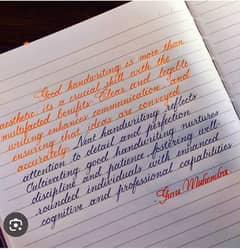 Good handwriting is more than
aesthetic its a crucial skill with the
multifaceted benefits. Clear and legible
writing enhances communication, and
ensuring that ideas are conveyed
accurately. Neat handwriting reflects
attention to detail and perfection.
Cultivating good handwriting nurtures
discipline and patience, fostering well-
rounded individuals with enhanced
cognitive and professional capabilities.